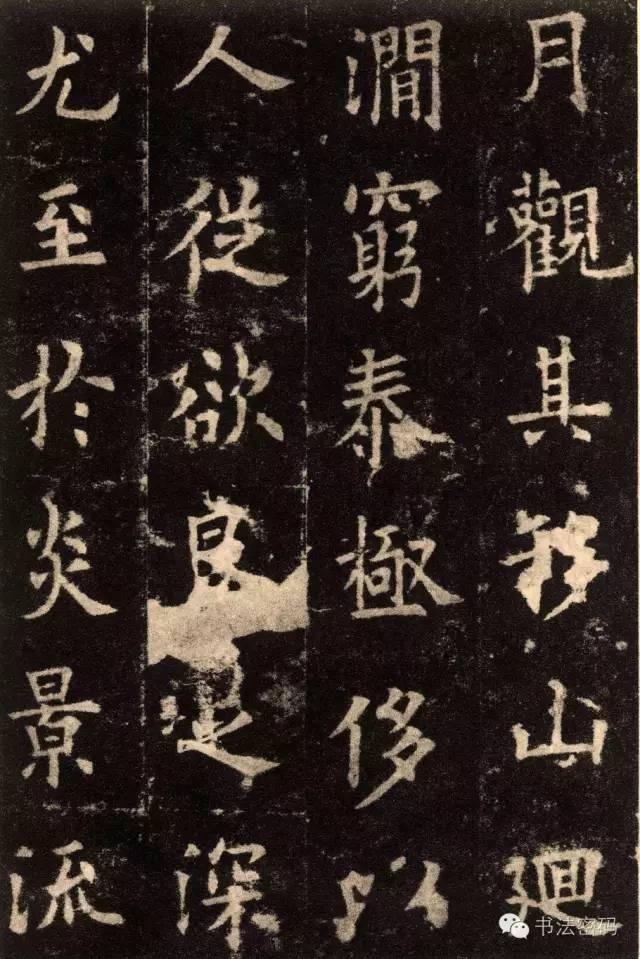 月觀其移山廻
澗窮泰極侈以
人從欲良足深
尤至於炎景流
书法密码